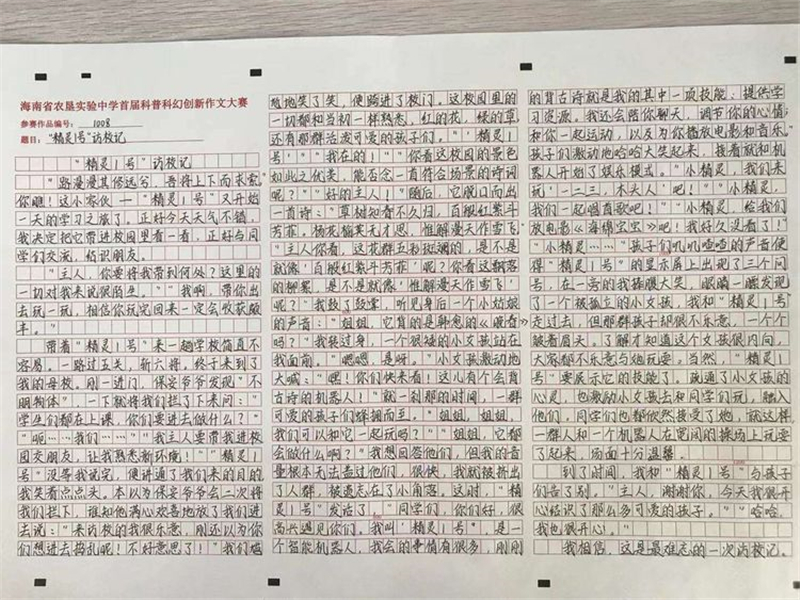 海南省农垦实验中学首届科普科幻创新作文大赛
参赛作品编号：1008
题目："精灵1号"访校记
"精灵1号"访校记
"路漫漫其修远兮，吾将上下而求索。"
你瞧！这小家伙——"精灵1号"又开始
一天的学习之旅了。正好今天天气不错，
我决定把它带进校园里看一看，正好与同
学们交流，结识朋友。
"主人，你要将我带到何处？这里的
一切对我来说很陌生。""我啊，带你出
去玩一玩，相信你玩完回来一定会收获颇
丰。"
带着"精灵1号"来一趟学校简直不
容易。一路过五关，斩六将，终于来到了
我的母校。刚一进门，保安爷爷发现"不
明物体"，一下就将我们拦了下来问："
学生们都在上课，你们要进去做什么？"
"呃…我们……""我主人要带我进校
园交朋友，让我熟悉新环境！""精灵1
号"没等我说完，便讲通了我们来的目的
我笑着点点头。本以为保安爷爷会二次将
我们拦下，谁知他满心欢喜地放了我们进
去说："来访校的我很乐意，刚还以为你
们想进去捣乱呢！不好意思了！"我们尴
尬地笑了笑，便踏进了校门。这校园里的
一切都和当初一样熟悉，红的花，绿的草
还有那群活泼可爱的孩子们。"'精灵1
号'""我在的！""你看这校园的景色
如此之优美，能否念一首符合场景的诗词
呢？""好的主人！"随后，它脱口而出
一首诗："草树知春不久归，百般红紫斗
芳菲。杨花榆荚无才思，惟解漫天作雪飞"
"主人你看，这花群五彩斑斓的，是不是
就像'百般红紫斗芳菲'呢？你看这飘落
的柳絮，是不是就像'惟解漫天作雪飞'
呢？"我鼓了鼓掌，听见身后一个小姑娘
的声音："姐姐，它背的是韩愈的《晚春》
吗？"我转过身，一个很矮的小女孩站在
我面前。"嗯嗯，是呀。"小女孩激动地
大喊："嘿！你们快来看！这儿有个会背
古诗的机器人！"就一刹那的时间，一群
可爱的孩子们蜂拥而至。"姐姐，姐姐，
我们可以和它一起玩吗？""姐姐，它都
会做什么啊？"我想回答他们，但我的音
量根本无法盖过他们。很快，我就被挤出
了人群，被遗忘在了小角落。这时，"精
灵1号"发话了！"同学们，你们好，很
高兴遇见你们。我叫'精灵1号'，是一
个智能机器人，我会的事情有很多，刚刚
的背古诗就是我的其中一项技能：提供学
习资源。我还会陪你聊天，调节你的心情
和你一起运动，以及为你播放电影和音乐。
孩子们激动地哈哈大笑起来，接着就和机
器人开始了娱乐模式。"小精灵，我们来
玩'一二三，木头人'吧！""小精灵，
我们一起唱首歌吧！""小精灵，给我们
放电影《海绵宝宝》吧！我好久没看了！"
"小精灵……"孩子们叽叽喳喳的声音使
得"精灵1号"的显示屏上出现了三个问
号，在一旁的我捧腹大笑。眼睛一瞟发现
了一个被孤立的小女孩，我和"精灵1号"
走过去，但那群孩子却很不乐意，一个个
皱着眉头。了解才知道这个女孩很内向，
大家都不乐意与她玩耍。当然，"精灵1
号"要展示它的技能了。疏通了小女孩的
心灵，也激励小女孩去和同学们玩，融入
他们，同学们也都欣然接受了她，就这样
一群人和一个机器人在宽阔的操场上玩耍
了起来，场面十分温馨。
到了时间，我和"精灵1号"与孩子
们告了别。"主人，谢谢你，今天我很开
心结识了那么多可爱的孩子。""哈哈，
我也很开心。"
我相信，这是最难忘的一次访校记。